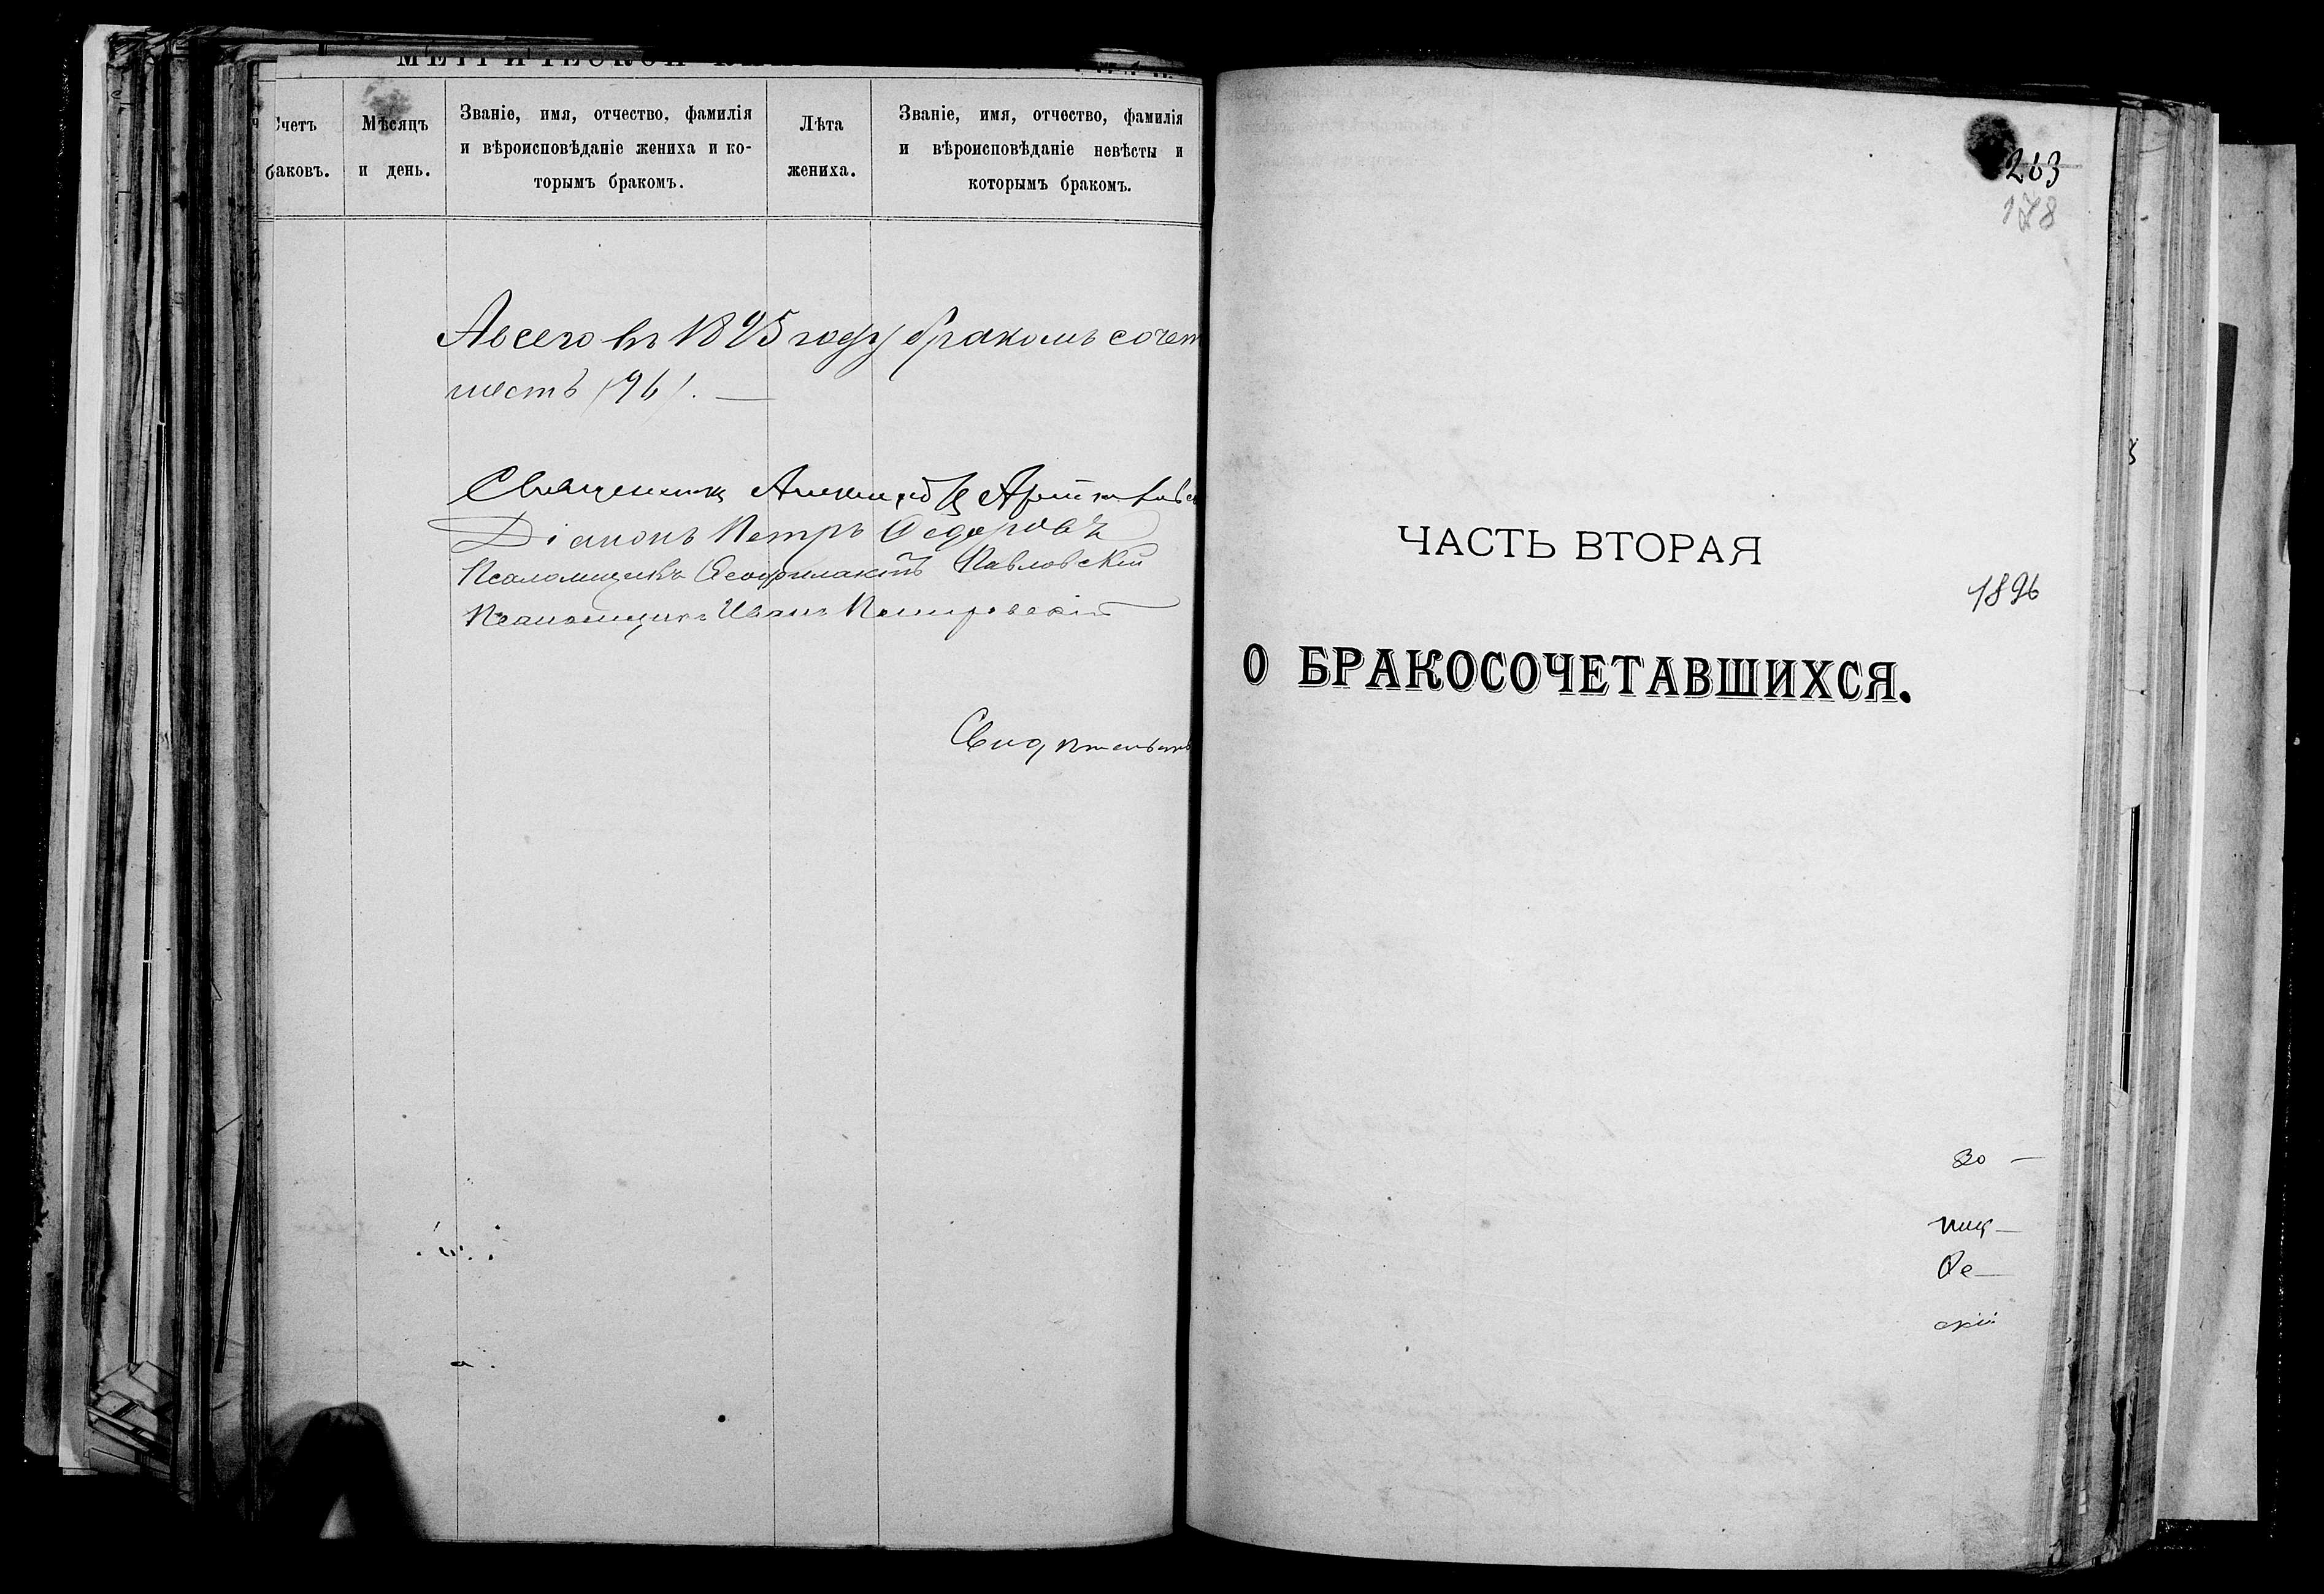 Счетъ
баковъ.
Мѣсяцъ
и день.
Званіе, имя, отчество, фамилія
и вѣроисповѣданіе жениха и ко-
торымъ бракомъ.
Лѣта
жениха.
Званіе, имя, отчество, фамилія
и вѣроисповѣданіе невѣсты и
которымъ бракомъ.
А всего въ 1895 году бракомъ сочет
шесть (96). —
Священникъ
Діаконъ Петръ Ѳедоровъ
Псаломщикъ Ѳеофилактъ Павловскій
Псаломщикъ Иванъ
263
178
ЧАСТЬ ВТОРАЯ
1896
О БРАКОСОЧЕТАВШИХСЯ.
во —
ник —
Ѳе —
скій